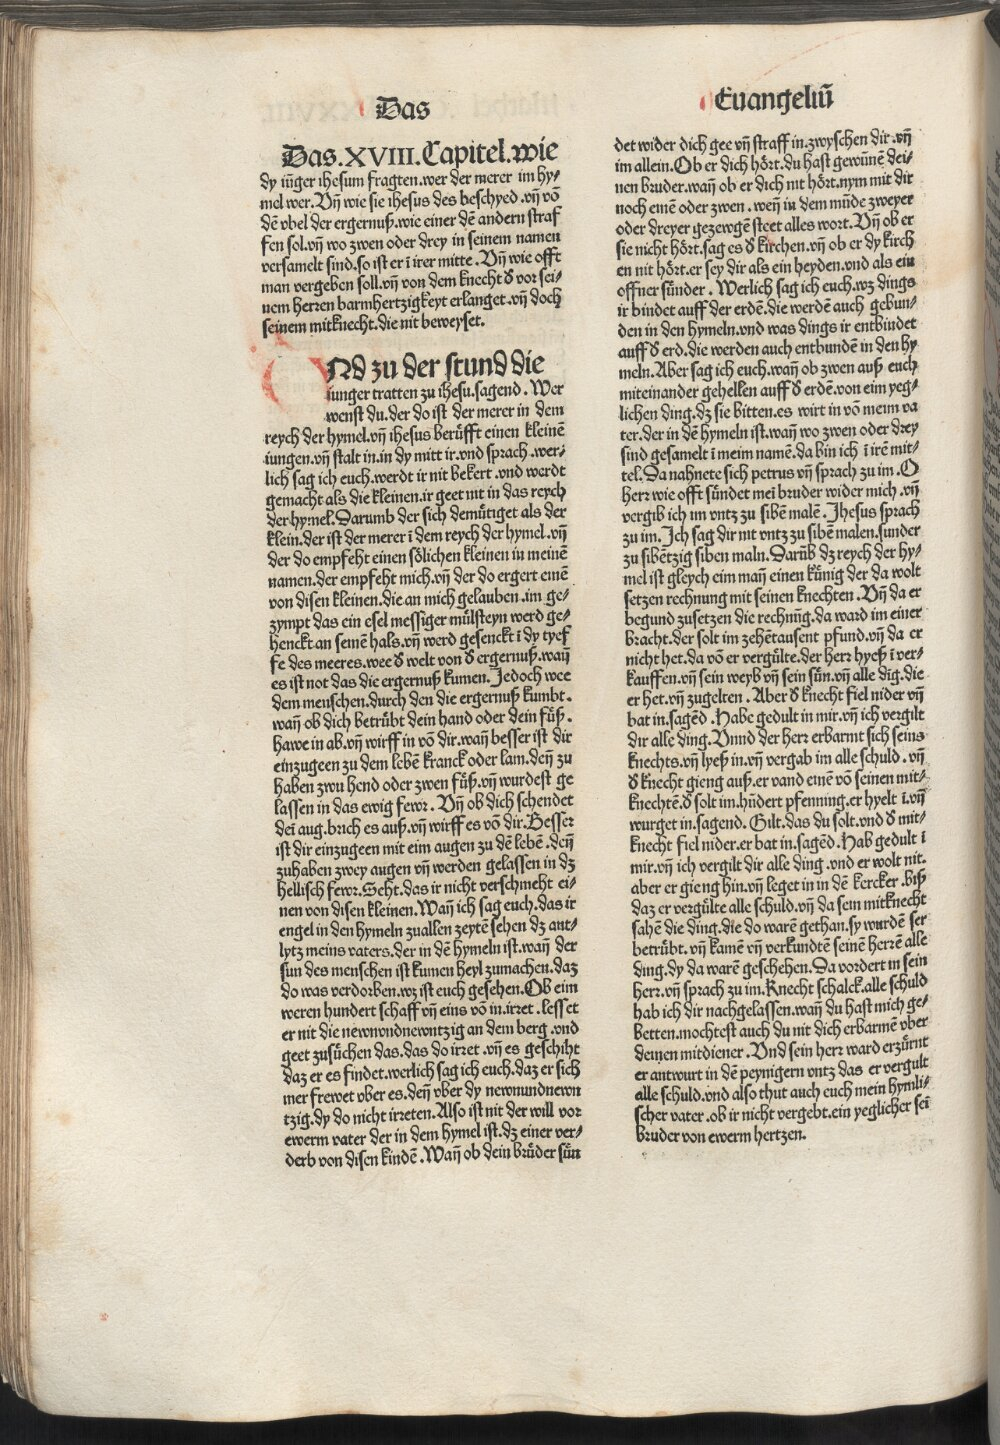 Das
Euangeliū
Das.XVIII.Capitel.wie
dy iūger ihesum fragten.wer der merer im hy⸗
mel wer. Vn̄ wie sie ihesus des beschyed.vn̄ vō
dē vbel der ergernuß.wie einer dē andern straf
fen sol.vn̄ wo zwen oder drey in seinem namen
versamelt sind.so ist er ī irer mitte. Vn̄ wie offt
man vergeben soll.vn̄ von dem knecht d̕ vor sei⸗
nem herren barmhertzigkeyt erlanget.vn̄ doch
seinem mitknecht.die nit beweyset.
Nd zu der stund die
iunger tratten zu ihesu.sagend. Wer
wenst du.der do ist der merer in dem
reych der hymel.vn̄ ihesus berůfft einen kleinē
iungen.vn̄ stalt in.in dy mitt ir.vnd sprach.wer⸗
lich sag ich euch.werdt ir nit bekert.vnd werdt
gemacht als die kleinen.ir geet nit in das reych
der hymel.Darumb der sich demůtiget als der
klein.der ist der merer ī dem reych der hymel.vn̄
der do empfeht einen sőlichen kleinen in meinē
namen.der empfeht mich.vn̄ der do ergert einē
von disen kleinen.die an mich gelauben.im ge⸗
zympt das ein esel messiger můlsteyn werd ge⸗
henckt an seinē hals.vn̄ werd gesenckt ī dy tyef
fe des meeres.wee d̕ welt von d̕ ergernuß.wan̄
es ist not das die ergernuß kumen.Jedoch wee
dem menschen.durch den die ergernuß kumbt.
wan̄ ob dich betrůbt dein hand oder dein fůß.
hawe in ab.vn̄ wirff in vō dir.wan̄ besser ist dir
einzugeen zu dem lebē kranck oder lam.den̄ zu
haben zwu hend oder zwen fůß.vn̄ wurdest ge
lassen in das ewig fewr. Vn̄ ob dich schendet
dei aug.brich es auß.vn̄ wirff es vō dir.Besser
ist dir einzugeen mit eim augen zu dē lebē.den̄
zuhaben zwey augen vn̄ werden gelassen in dz
hellisch fewr.Seht.das ir nicht verschmeht ei⸗
nen von disen kleinen.Wan̄ ich sag euch.das ir
engel in den hymeln zuallen zeytē sehen dz ant⸗
lytz meins vaters.der in dē hymeln ist.wan̄ der
sun des menschen ist kumen heyl zumachen.daz
do was verdorben.wz ist euch gesehen.Ob eim
weren hundert schaff vn̄ eins vō in.irret.lesset
er nit die newnvndnewntzig an dem berg.vnd
geet zusůchen das.das do irret.vn̄ es geschiht
daz er es findet.werlich sag ich euch.daz er sich
mer frewet vber es.den̄ vber dy newnundnewn
tzig.dy do nicht irreten.Also ist nit der will vor
ewerm vater der in dem hymel ist.dz einer ver⸗
derb von disen kindē.Wan̄ ob dein brůder sůn
det wider dich gee vn̄ straff in.zwyschen dir.vn̄
im allein.Ob er dich hőrt.du hast gewūnē dei⸗
nen bruder.wan̄ ob er dich nit hőrt.nym mit dir
noch einē oder zwen.wen̄ in dem mūde zweyer
oder dreyer gezewgē steet alles wort.Vn̄ ob er
sie nicht hőrt.sag es d̕ kirchen.vn̄ ob er dy kirch
en nit hőrt.er sey dir als ein heyden.vnd als ein
offner sůnder. Werlich sag ich euch.wz dings
ir bindet auff der erdē.die werdē auch gebun⸗
den in den hymeln.vnd was dings ir entbindet
auff d̕ erd.die werden auch entbundē in den hy
meln.Aber sag ich euch.wan̄ ob zwen auß euch
miteinander gehellen auff d̕ erdē.von eim yeg⸗
lichen ding.dz sie bitten.es wirt in vō meim va
ter.der in dē hymeln ist.wan̄ wo zwen oder drey
sind gesamelt ī meim namē.da bin ich ī irē mit⸗
tel.Da nahnete sich petrus vn̄ sprach zu im.O
herr wie offt sůndet mei bruder wider mich.vn̄
vergib ich im vntz zu sibē malē.Jhesus sprach
zu im.Ich sag dir nit vntz zu sibē malen.sunder
zu sibētzig siben maln.Darūb dz reych der hy⸗
mel ist gleych eim man̄ einen kůnig der da wolt
setzen rechnung mit seinen knechten. Vn̄ da er
begund zusetzen die rechnūg.da ward im einer
bracht.der solt im zehētausent pfund.vn̄ da er
nicht het.da vō er vergůlte.der herr hyeß ī ver⸗
kauffen.vn̄ sein weyb vn̄ sein sůn.vn̄ alle dig.die
er het.vn̄ zugelten. Aber d̕ knecht fiel nider vn̄
bat in.sagēd.Habe gedult in mir.vn̄ ich vergilt
dir alle ding.Vnnd der herr erbarmt sich seins
knechts.vn̄ lyeß in.vn̄ vergab im alle schuld.vn̄
d̕ knecht gieng auß.er vand einē vō seinen mit⸗
knechtē.d̕ solt im.hūdert pfenning.er hyelt ī.vn̄
wurget in.sagend. Gilt.das du solt.vnd d̕ mit⸗
knecht fiel nider.er bat in.sagēd.Hab gedult ī
mir.vn̄ ich vergilt dir alle ding.vnd er wolt nit.
aber er gieng hin.vn̄ leget in in dē kercker.biß
daz er vergůlte alle schuld.vn̄ da sein mitknecht
sahē die ding.die do warē gethan.sy wurdē ser
betrůbt.vn̄ kamē vn̄ verkundtē seinē herrē alle
ding.dy da warē geschehen.Da vordert in sein
herr.vn̄ sprach zu im.Knecht schalck.alle schuld
hab ich dir nachgelassen.wan̄ du hast mich ge⸗
betten.mochtest auch du nit dich erbarmē vber
deinen mitdiener.Vnd sein herr ward erzůrnt
er antwurt in dē peynigern vntz das er vergult
alle schuld.vnd also thut auch euch mein hymli⸗
scher vater.ob ir nicht vergebt.ein yeglicher sei
bruder von ewerm hertzen.